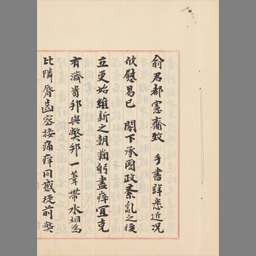 俞君都憲齋致 手書詳悉近況
欣慰曷已 閣下承國政紊亂之後
立更始維新之朝鞠躬盡瘁宜克
有濟貴邦與弊邦一葦帶水
比隣脣齒密接痛痒同感從前契